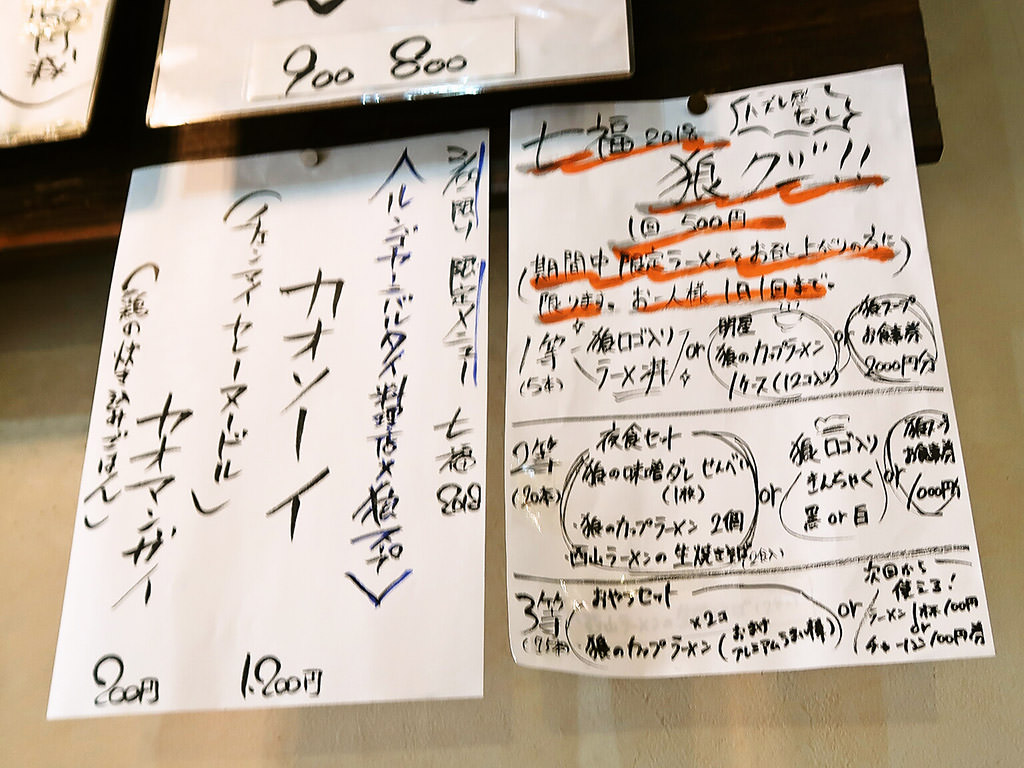 900 800
限定メニュー 七福 2018
カオソーイ
(チェンマイカレーヌードル)
カオマンガイ
(鶏の炊き込みごはん)
1.200円
200円
ハズレ戻なし
七福2018
狼クジ!!
1回 500円
(期間中限定ラーメンをお召し上がりの方に
限ります。お一人様1日1回まで。)
1等
(5本)
狼ロゴ入り
ラーメン丼
or
明星
狼のカップラーメン
1ケース(12コ入り)
or
狼スープ
お食事券
2000円分
2等
(20本)
夜食セット
狼の味噌ダレせんべい
(1枚)
・狼のカップラーメン 2個
西山ラーメンの生焼きそば(2食入)
or
狼ロゴ入り
きんちゃく
黒or白
or
狼スープ
お食事券
1000円分
3等
(75本)
おやつセット
狼のカップラーメン ×2コ
(おまけ
プレミアムうまい棒)
or
次回から
使える!
ラーメン1杯100円
or
チャーハン100円券